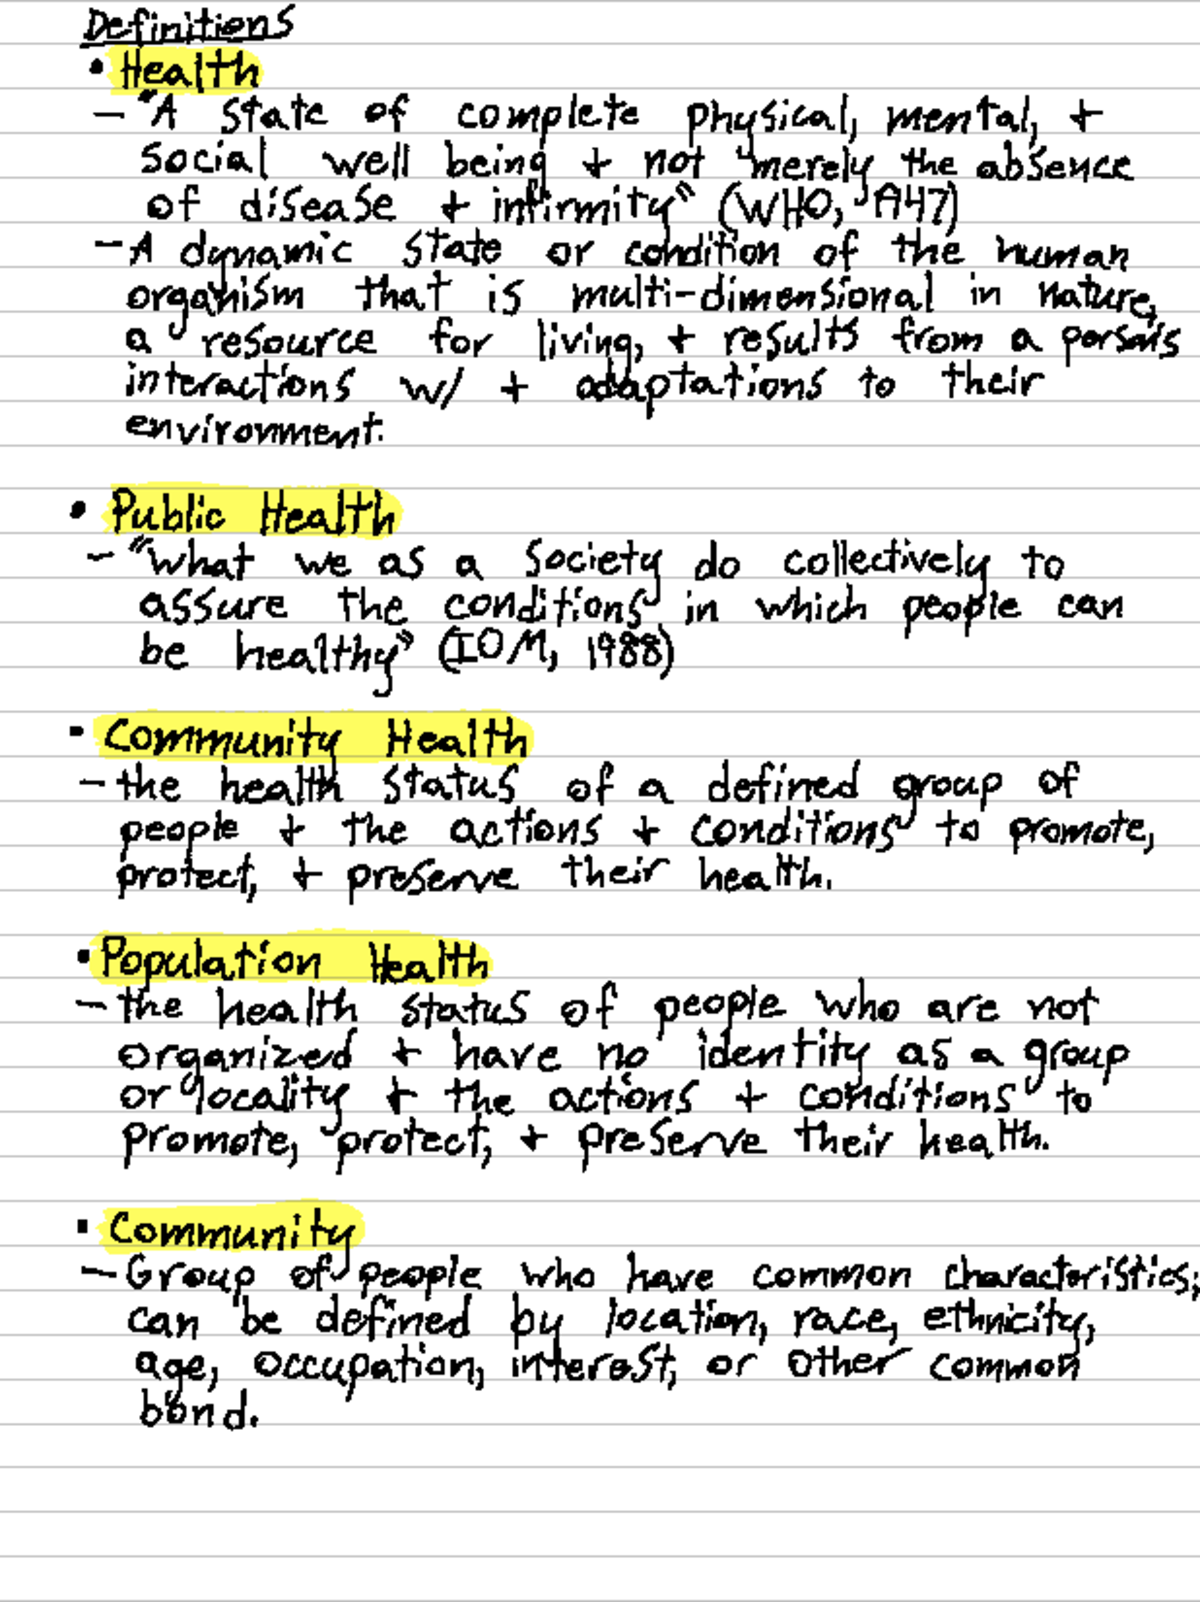 Definitions
• Health
– "A state of complete physical, mental, +
social well being + not merely the absence
of disease + infirmity" (WHO, 1947)
– A dynamic state or condition of the human
organism that is multi-dimensional in nature,
a resource for living, + results from a person's
interactions w/ + adaptations to their
environment.
• Public Health
– "What we as a society do collectively to
assure the conditions in which people can
be healthy" (IOM, 1988)
• Community Health
– the health status of a defined group of
people + the actions + conditions to promote,
protect, + preserve their health.
• Population Health
– the health status of people who are not
organized + have no identity as a group
or locality + the actions + conditions to
promote, protect, + preserve their health.
• Community
– Group of people who have common characteristics;
can be defined by location, race, ethnicity,
age, occupation, interest, or other common
bond.